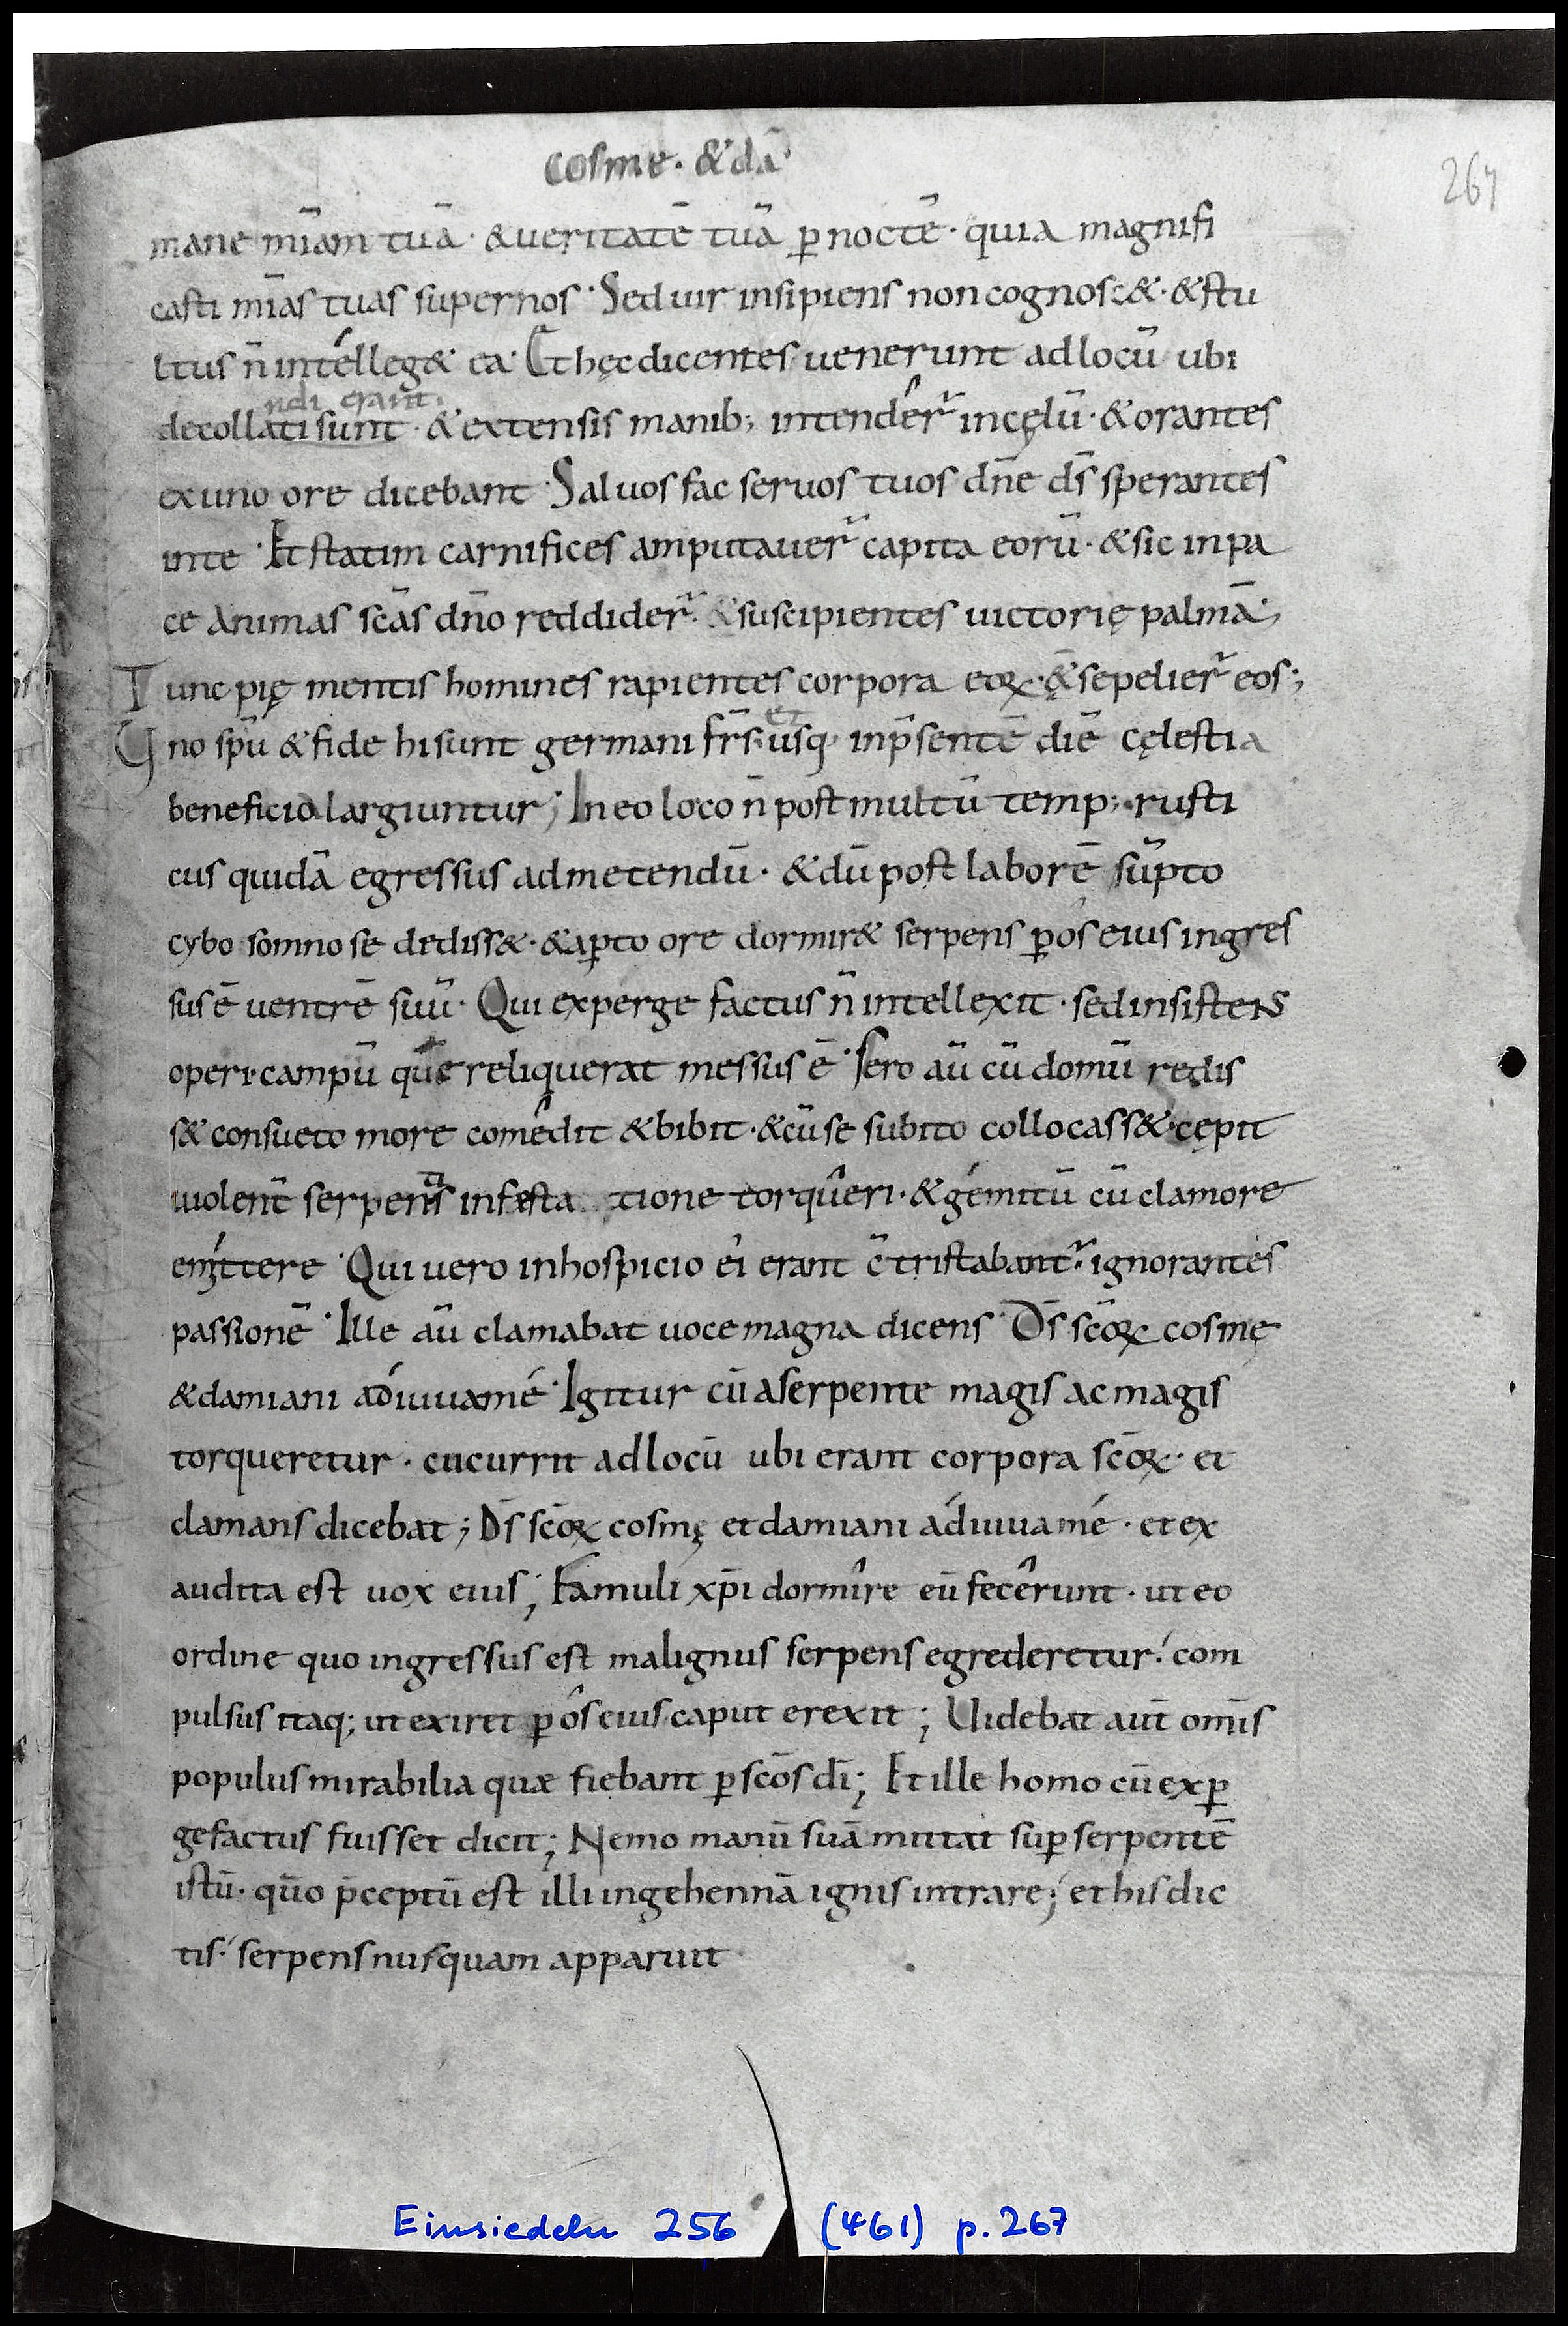 cosme · & dā
267
mane m̄iam tuā · & ueritatē tuā p̱ noctē · quia magnifi
casti m̄ias tuas super nos · Sed uir insipiens non cognosc& · & stu
ltus n̄ intélleg& ea · Et hęc dicentes uenerunt ad locū ubi
ndi erant ·
decollati sunt · & extensis manib; intendêr̃ in cęlū · & orantes
ex uno ore dicebant · Saluos fac seruos tuos dn̄e ds̄ sperantes
in te · Et statim carnifices amputauer̃ capita eorū · & sic in pa
ce animas scās dn̄o reddider̃ · & suscipientes uictorię palmā ;
Tunc pię mentis homines rapientes corpora eoꝝ · & sepelier̃ eos ;
et
Uno spū & fide hi sunt germani fr̄s · usq; in p̄sentē diē cęlestia
beneficia largiuntur ; In eo loco n̄ post multū temp; · rusti
cus quidā egressus ad metendū · & dū post laborē sūpto
cybo somno se dediss& · & ap̱to ore dormir& serpens p̱ os eius ingres
sus ē uentrē suū · Qui experge factus n̄ intellexit · sed insistens
operi · campū quē reliquerat messus ē · Sero aū cū domū redis
s& consueto more comêdit & bibit · & cū se subito collocass& · cępit
uiolent̄ serpentis infestatione torquêri · & gémitū cū clamore
emíttere · Qui uero in hospicio ei erant c̄tristabant̃ · ignorantes
passionē · Ille aū clamabat uoce magna dicens · Ds̄ scōꝝ cosmę
& damiani ádiuua mé · Igitur cū a serpente magis ac magis
torqueretur · cucurrit ad locū ubi erant corpora scōꝝ · et
clamans dicebat ; Ds̄ scōꝝ cosmę et damiani ádiuua mé · et ex
audita est uox eius ; Famuli xp̄i dormîre eū fecêrunt · ut eo
ordine quo ingressus est malignus serpens egrederetur · com
pulsus itaq; ut exiret p̱ ôs eius caput erexit ; Uidebat aut̄ om̄is
populus mirabilia quæ fiebant p̱ scōs dī ; Et ille homo cū exp̱
gefactus fuisset dicit ; Nemo manū suā mittat sup̱ serpentē
istū · qūo p̄ceptū est illi in gehennā ignis intrare ; et his dic
tis · serpens nusquam apparuit
Einsiedeln 256 (461) p. 267